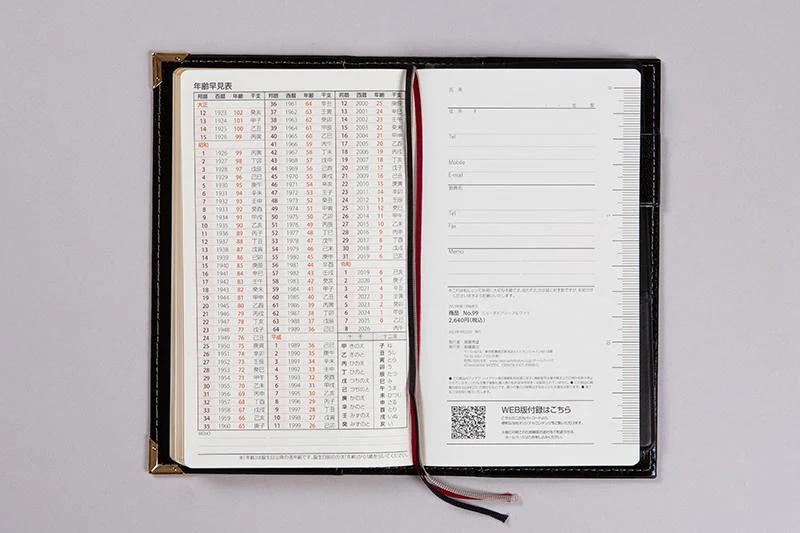 年齢早見表
邦暦 西暦 年齢 干支
大正
12 1923 102 癸亥
13 1924 101 甲子
14 1925 100 乙丑
15 1926 99 丙寅
昭和
1 1926 99 丙寅
2 1927 98 丁卯
3 1928 97 戊辰
4 1929 96 己巳
5 1930 95 庚午
6 1931 94 辛未
7 1932 93 壬申
8 1933 92 癸酉
9 1934 91 甲戌
10 1935 90 乙亥
11 1936 89 丙子
12 1937 88 丁丑
13 1938 87 戊寅
14 1939 86 己卯
15 1940 85 庚辰
16 1941 84 辛巳
17 1942 83 壬午
18 1943 82 癸未
19 1944 81 甲申
20 1945 80 乙酉
21 1946 79 丙戌
22 1947 78 丁亥
23 1948 77 戊子
24 1949 76 己丑
25 1950 75 庚寅
26 1951 74 辛卯
27 1952 73 壬辰
28 1953 72 癸巳
29 1954 71 甲午
30 1955 70 乙未
31 1956 69 丙申
32 1957 68 丁酉
33 1958 67 戊戌
34 1959 66 己亥
35 1960 65 庚子
MEMO
邦暦 西暦 年齢 干支
36 1961 64 辛丑
37 1962 63 壬寅
38 1963 62 癸卯
39 1964 61 甲辰
40 1965 60 乙巳
41 1966 59 丙午
42 1967 58 丁未
43 1968 57 戊申
44 1969 56 己酉
45 1970 55 庚戌
46 1971 54 辛亥
47 1972 53 壬子
48 1973 52 癸丑
49 1974 51 甲寅
50 1975 50 乙卯
51 1976 49 丙辰
52 1977 48 丁巳
53 1978 47 戊午
54 1979 46 己未
55 1980 45 庚申
56 1981 44 辛酉
57 1982 43 壬戌
58 1983 42 癸亥
59 1984 41 甲子
60 1985 40 乙丑
61 1986 39 丙寅
62 1987 38 丁卯
63 1988 37 戊辰
64 1989 36 己巳
平成
1 1989 36 己巳
2 1990 35 庚午
3 1991 34 辛未
4 1992 33 壬申
5 1993 32 癸酉
6 1994 31 甲戌
7 1995 30 乙亥
8 1996 29 丙子
9 1997 28 丁丑
10 1998 27 戊寅
11 1999 26 己卯
邦暦 西暦 年齢 干支
12 2000 25 庚辰
13 2001 24 辛巳
14 2002 23 壬午
15 2003 22 癸未
16 2004 21 甲申
17 2005 20 乙酉
18 2006 19 丙戌
19 2007 18 丁亥
20 2008 17 戊子
21 2009 16 己丑
22 2010 15 庚寅
23 2011 14 辛卯
24 2012 13 壬辰
25 2013 12 癸巳
26 2014 11 甲午
27 2015 10 乙未
28 2016 9 丙申
29 2017 8 丁酉
30 2018 7 戊戌
31 2019 6 己亥
令和
1 2019 6 己亥
2 2020 5 庚子
3 2021 4 辛丑
4 2022 3 壬寅
5 2023 2 癸卯
6 2024 1 甲辰
7 2025 0 乙巳
8 2026 丙午
十干 十二支
甲 きのえ 子 ね
乙 きのと 丑 うし
丙 ひのえ 寅 とら
丁 ひのと 卯 う
戊 つちのえ 辰 たつ
己 つちのと 巳 み
庚 かのえ 午 うま
辛 かのと 未 ひつじ
壬 みずのえ 申 さる
癸 みずのと 酉 とり
戌 いぬ
亥 い
氏名
住所 〒
Tel
Mobile
E-mail
勤務先
Tel
Fax
Memo
商品 No.99
2,640円(税込)
WEB版付録はこちら